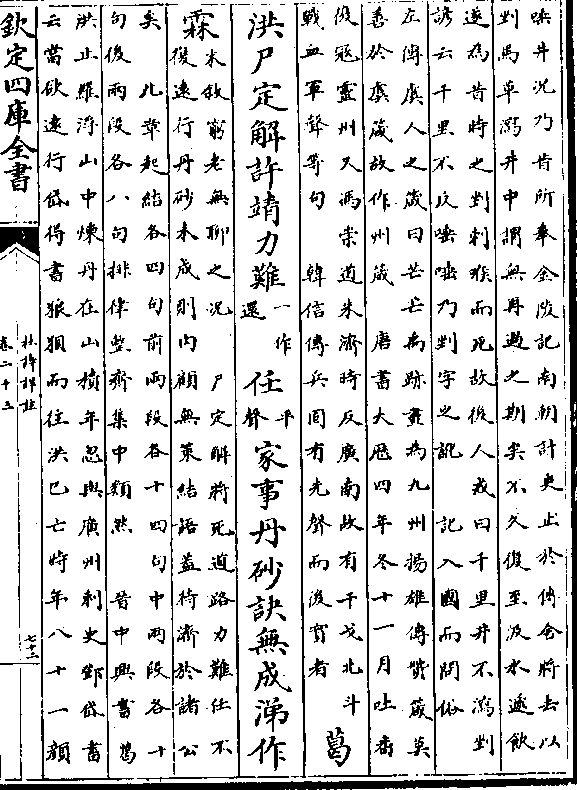 唾井況乃昔所奉金陵記南朝計吏止於傳舍將去以
剉馬草瀉井中謂無再過之期矣不久復至汲水遂飲
遂為昔時之剉刺喉而死故後人戒曰千里井不瀉剉
諺云千里不反唾唾乃剉字之訛 記入國而問俗
左傳虞人之箴曰芒芒禹跡畫為九州揚雄傳贊箴莫
善於虞箴故作州箴 唐書大歷四年冬十一月吐番
復寇靈州又馮崇道朱濟時反廣南故有干戈北斗
戰血軍聲等句 韓信傳兵固有先聲而後實者
葛
洪尸定解許靖力難一作還任平聲家事丹砂訣無成涕作
霖末敘窮老無聊之況 尸定解將死道路力難任不
復遠行丹砂未成則内顧無策結語蓋待濟於諸公
矣 此章起結各四句前兩段各十四句中兩段各十
句後兩段各八句排律整齊集中類然 晉中興書葛
洪止羅浮山中煉丹在山積年忽與廣州刺史鄧岱書
云當欲遠行岱得書狼狽而往洪已亡時年八十一顏
欽定四庫全書
杜詩詳註
卷二十三
七十二